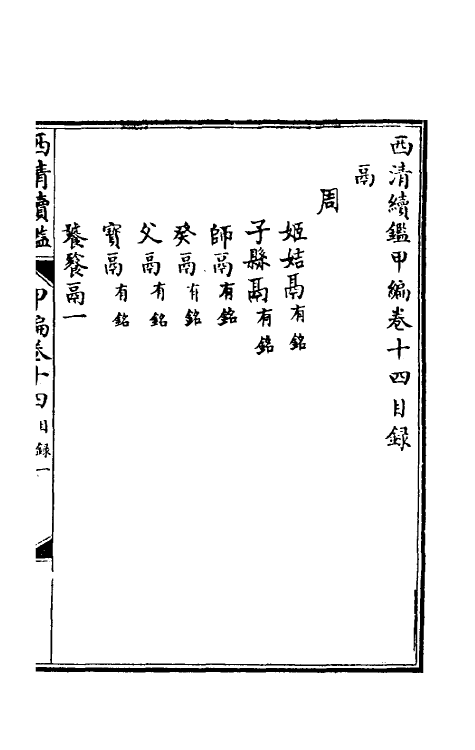 西清續鑑甲編卷十四目録
鬲
周
姬姞鬲有銘
子縣鬲有銘
師鬲有銘
癸鬲有銘
父鬲有銘
寶鬲有銘
饕餮鬲一
西清續鑑 甲編卷十四目録 一